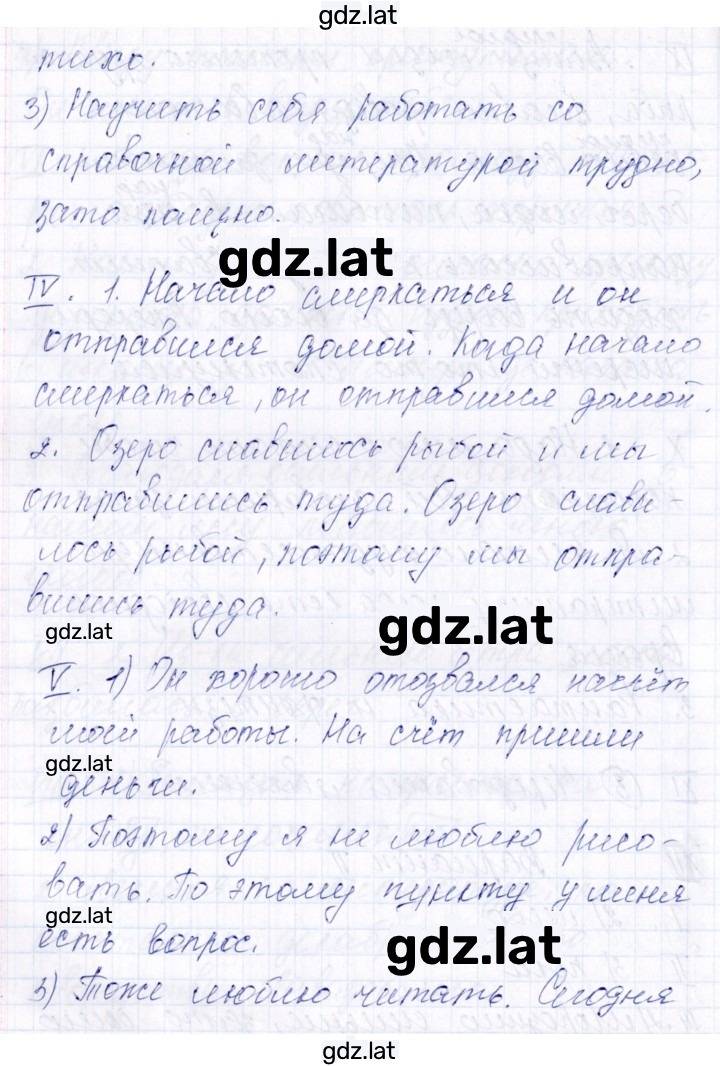 gdz.lat
тихо.
3) Научить себя работать со
справочной литературой трудно,
зато полезно.
gdz.lat
IV. 1. Начало смеркаться и он
отправился домой. Когда начало
смеркаться, он отправился домой.
2. Озеро славилось рыбой и мы
отправились туда. Озеро слави-
лось рыбой, поэтому мы отпра-
вились туда.
gdz.lat
gdz.lat
V. 1) Он хорошо отозвался насчёт
моей работы. На счёт пришли
gdz.lat
деньги.
2) Поэтому я не люблю рисо-
вать. По этому пункту у меня
gdz.lat
есть вопрос.
gdz.lat
3) Тоже люблю читать. Сегодня
gdz.lat